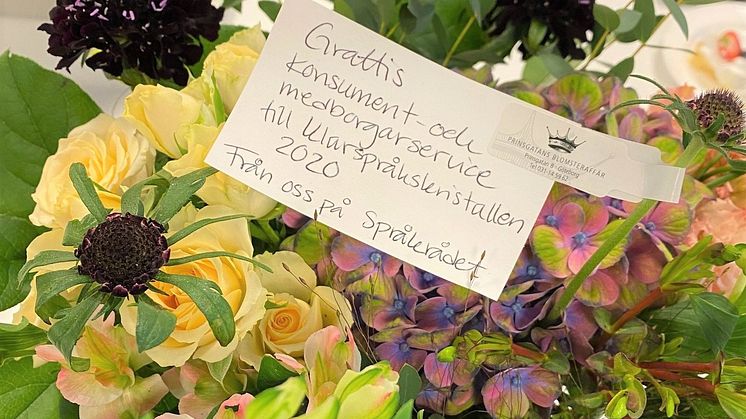 Grattis
Konsument- och
medborgarservice
till Klarspråkskristallen
2020
Från oss på Språkrådet
PRINSGATANS BLOMSTERAFFÄR
Prinsgatan 9 - Göteborg
Tel 031-14 59 62